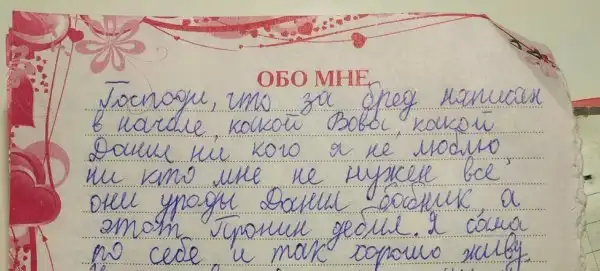 ОБО МНЕ
Господи, что за бред написан
в начале, какой Вова, какой
Данил ни кого я не люблю
ни кто мне не нужен все
они уроды Данил бабник, а
этот Пронин дебил. Я сама
по себе и так хорошо живу.